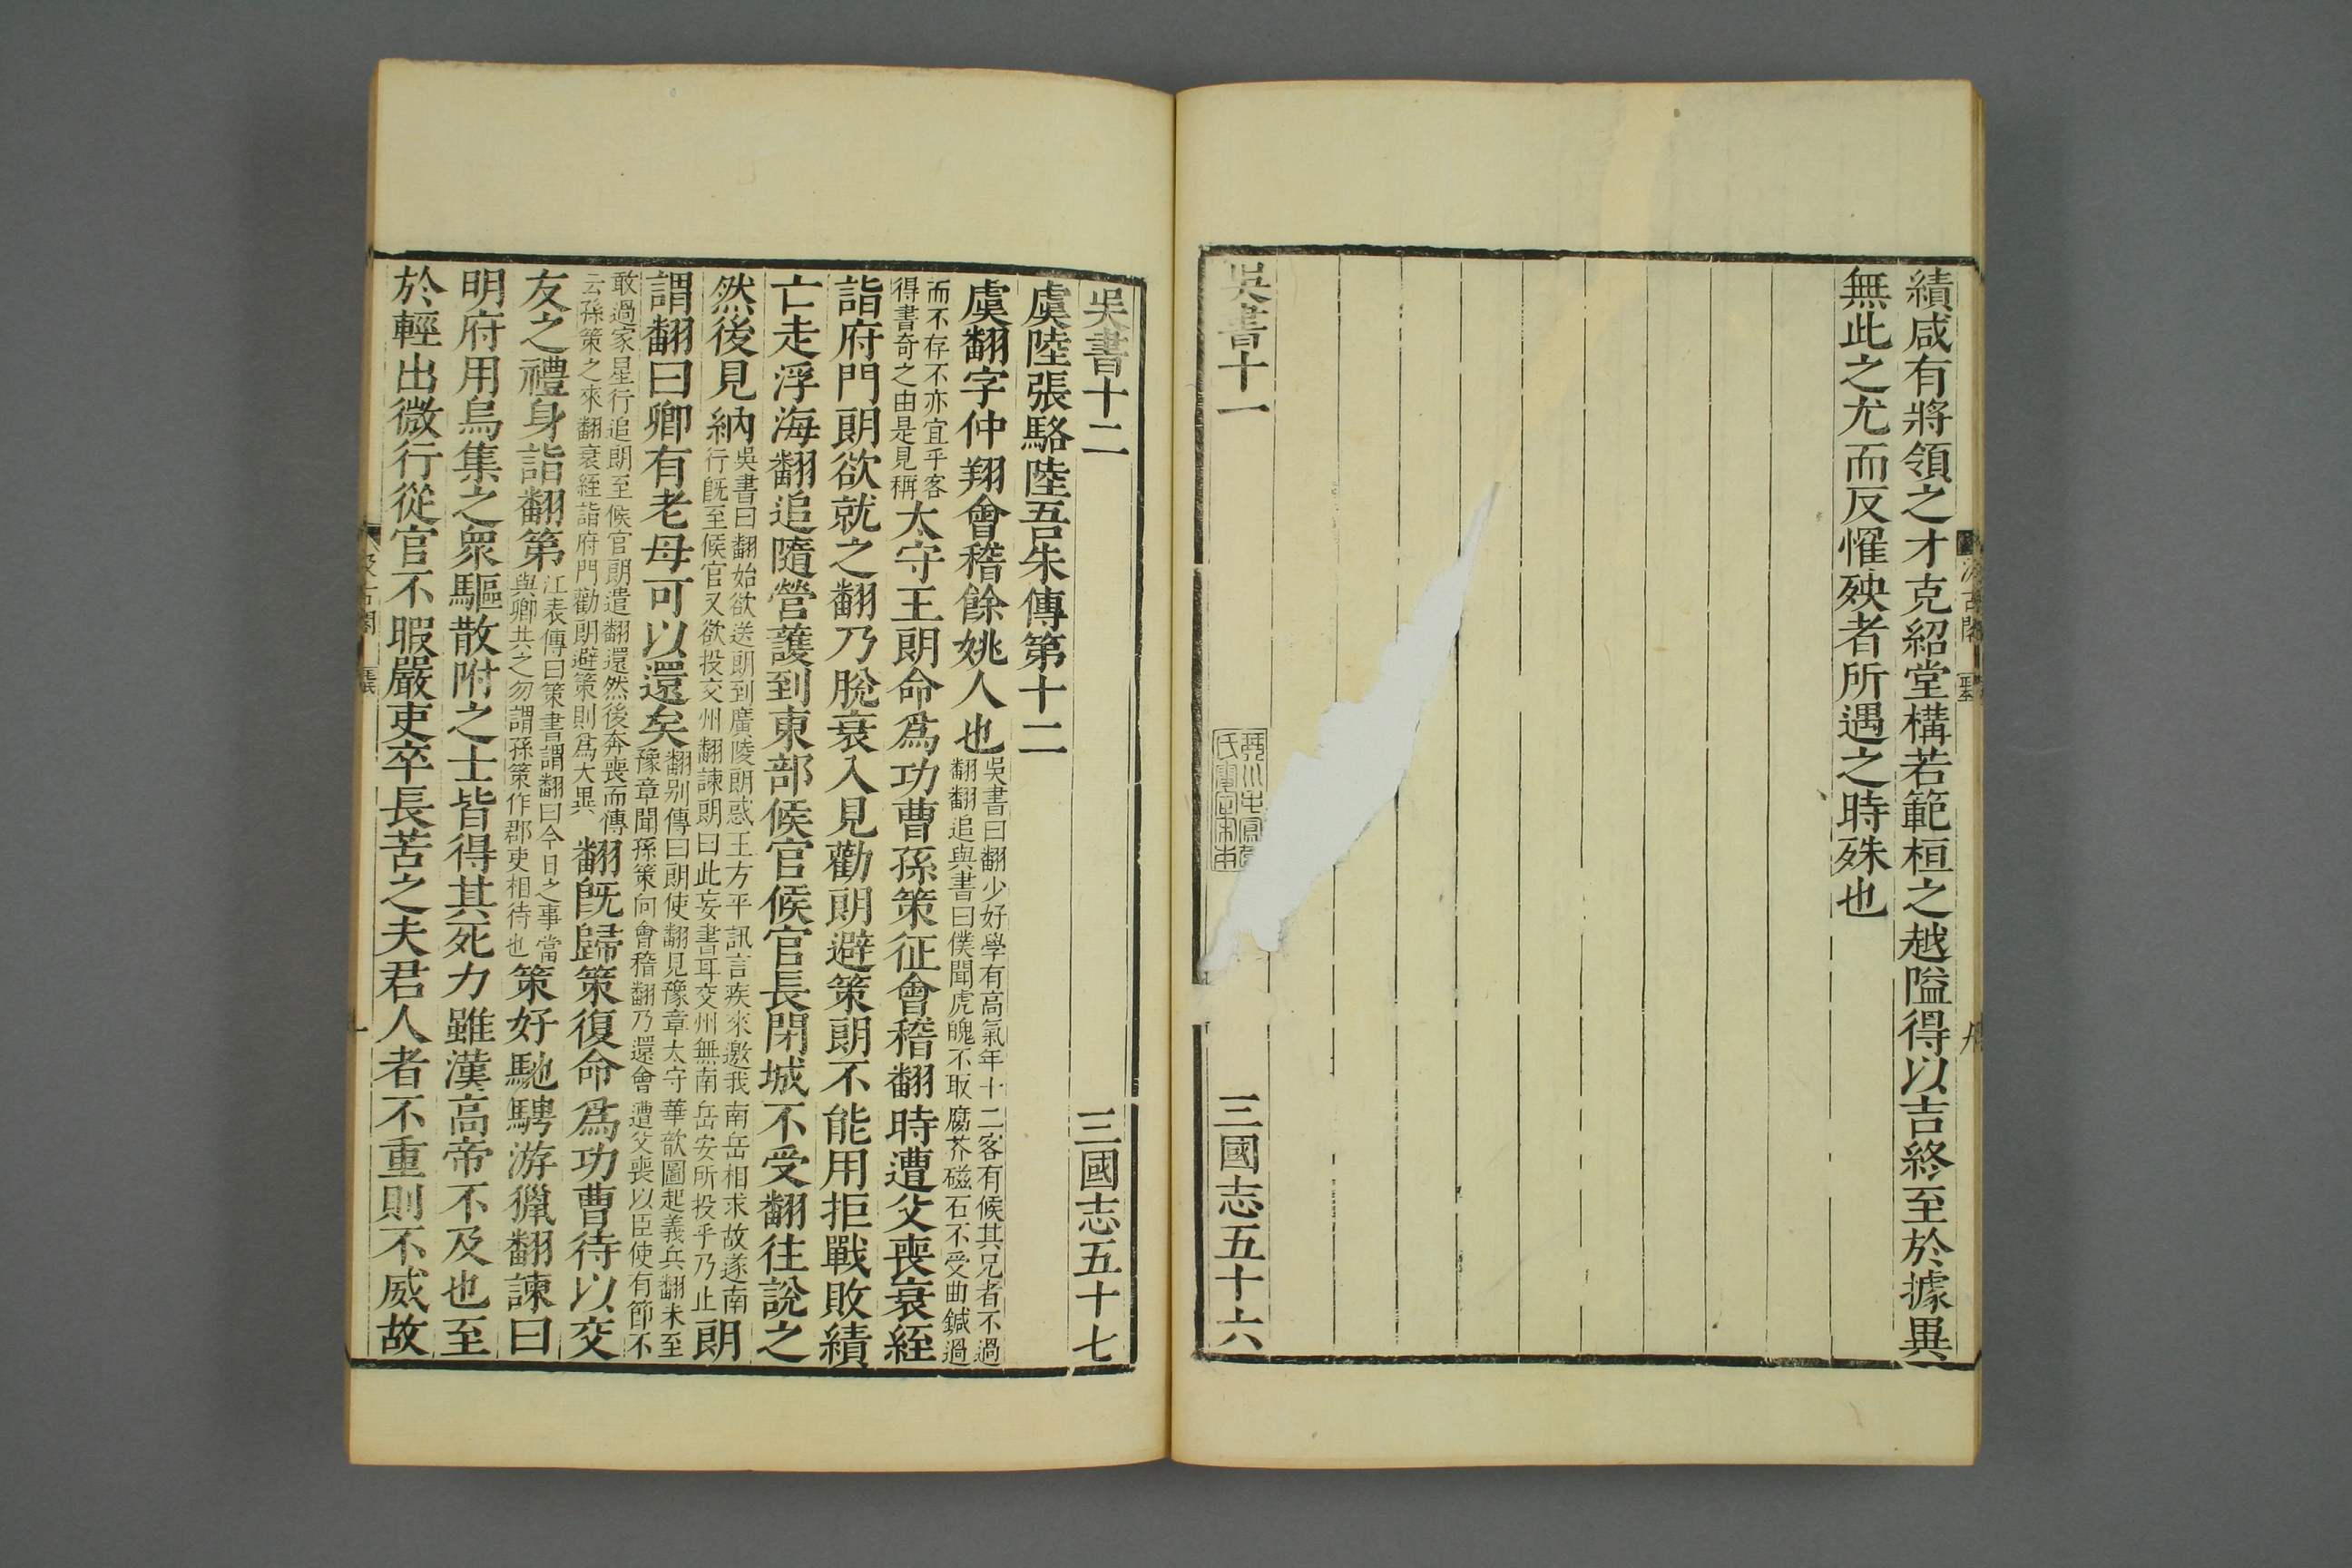 績咸有將領之才克紹堂構若範桓之越隘得以吉終至於據異
無此之尤而反懼殃者所遇之時殊也
吳書十一
三國志五十六
吳書十二
三國志五十七
虞陸張駱陸吾朱傳第十二
虞翻字仲翔會稽餘姚人也
吳書曰翻少好學有高氣年十二客有候其兄者不過
翻翻追與書曰僕聞虎魄不取腐芥磁石不受曲鍼過
而不存不亦宜乎客
得書奇之由是見稱
太守王朗命爲功曹孫策征會稽翻時遭父喪衰絰
詣府門朗欲就之翻乃脫衰入見勸朗避策朗不能用拒戰敗績
亡走浮海翻追隨營護到東部候官候官長閉城不受翻往說之
然後見納
吳書曰翻始欲送朗到廣陵朗惑王方平訊言疾來邀我南岳相求故遂南
行旣至候官又欲投交州翻諫朗曰此妄書耳交州無南岳安所投乎乃止
朗
謂翻曰卿有老母可以還矣
翻别傳曰朗使翻見豫章太守華歆圖起義兵翻未至
豫章聞孫策向會稽翻乃還會遭父喪以臣使有節不
敢過家星行追朗至候官朗遣翻還然後奔喪而傳
云孫策之來翻衰絰詣府門勸朗避策則爲大異
翻旣歸策復命爲功曹待以交
友之禮身詣翻第
江表傳曰策書謂翻曰今日之事當
與卿共之勿謂孫策作郡吏相待也
策好馳騁游獵翻諫曰
明府用烏集之衆驅散附之士皆得其死力雖漢高帝不及也至
於輕出微行從官不暇嚴吏卒長苦之夫君人者不重則不威故